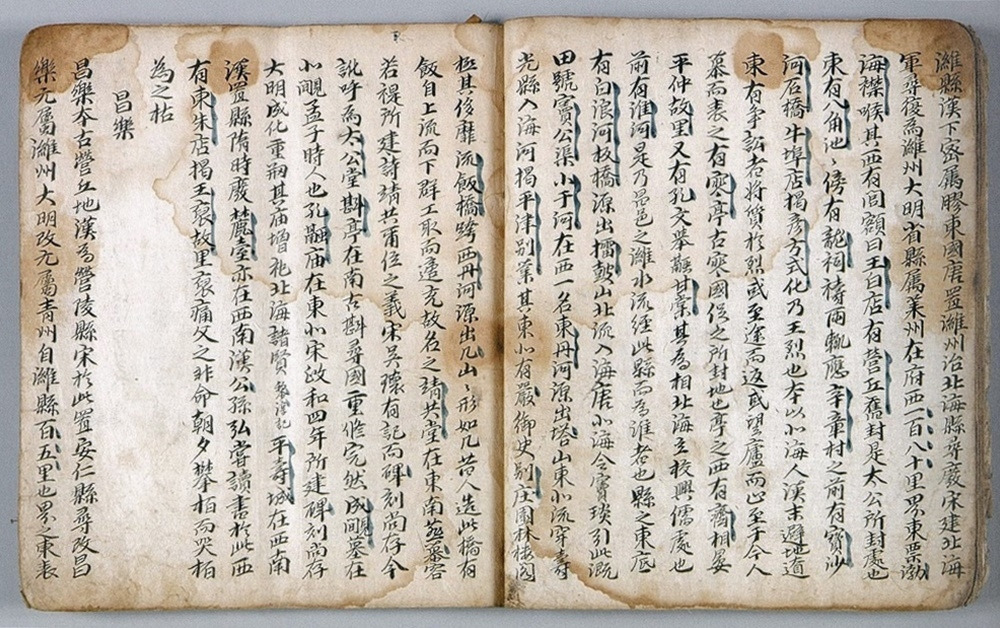 濰縣漢下密屬膠東國唐置濰州治北海縣尋廢宋建北海
軍尋復為濰州大明省縣屬萊州在府西一百八十里界東票渤
海襟喉其西有閭額曰王白店有營丘舊封是太公所封處也
東有八角池〻傍有龍祠禱雨輒應辛章村之前有寶沙
河石橋牛埠店揭彦方式化乃王烈也本以北海人漢末避地遼
東有爭訟者將質於烈或至途而返或望廬而止至于今人
慕而表之有寒亭古寒國促之所封地也亭之西有齊相晏
平仲故里又有孔文舉融甘棠其為相北海立校興儒處也
前有淮河是乃昌邑之濰水流經此縣而為淮者也縣之東底
有白浪河板橋源出擂皷山北流入海唐北海令竇琰引此溉
田號竇公渠小于河在西一名東丹河源出塔山東北流穿壽
光縣入海河揭平津別業其東北有嚴御史別庄園林楼閣
極其侈靡流飯橋跨西丹河源出几山〻形如几昔人造此橋有
飯自上流而下群工取而遣充故名之靖共堂在東南燕慕容
若禔所建詩靖共爾位之義宋吳襐有記而碑刻尚存今
訛呼為太公堂斟亭在南古斟尋國重修宛然成覸墓在
北覸孟子時人也孔融庙在東北宋政和四年所建碑刻尚存
大明成化重刱其庙增祀北海諸賢平壽城在西南
漢置縣隋時廢麓臺亦在西南漢公孫弘嘗讀書於此西
有東朱店揭王裒故里裒痛父之非命朝夕攀栢而哭栢
為之枯
昌樂
昌樂本古營丘地漢為營陵縣宋於此置安仁縣尋改昌
樂元屬濰州大明改元屬青州自濰縣百五里也界之東表